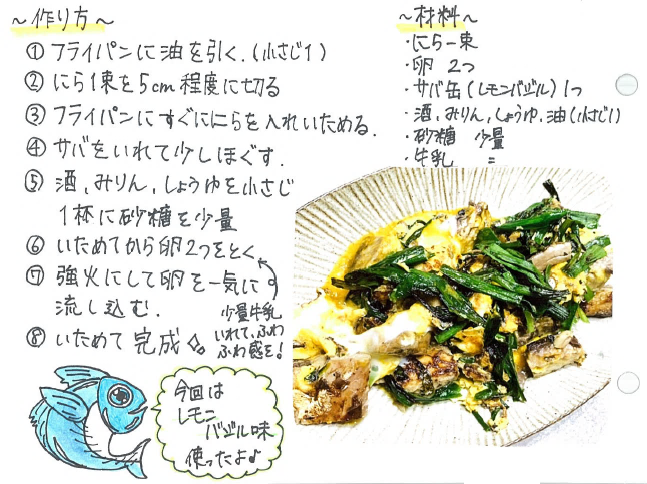 ～作り方～
① フライパンに油を引く.(小さじ1)
② にら1束を5cm程度に切る
③ フライパンにすぐににらを入れいためる.
④ サバをいれて少しほぐす.
⑤ 酒、みりん、しょうゆを小さじ
1杯に砂糖を少量
⑥ いためてから卵2つをとく
⑦ 強火にして卵を一気に
流し込む.
少量牛乳
いれて、ふわ
ふわ感を!
⑧ いためて完成
～材料～
・にら一束
・卵 2つ
・サバ缶(レモンバジル)1つ
・酒、みりん、しょうゆ、油(小さじ1)
・砂糖 少量
・牛乳 =
今回は
レモン
バジル味
使ったよ♪